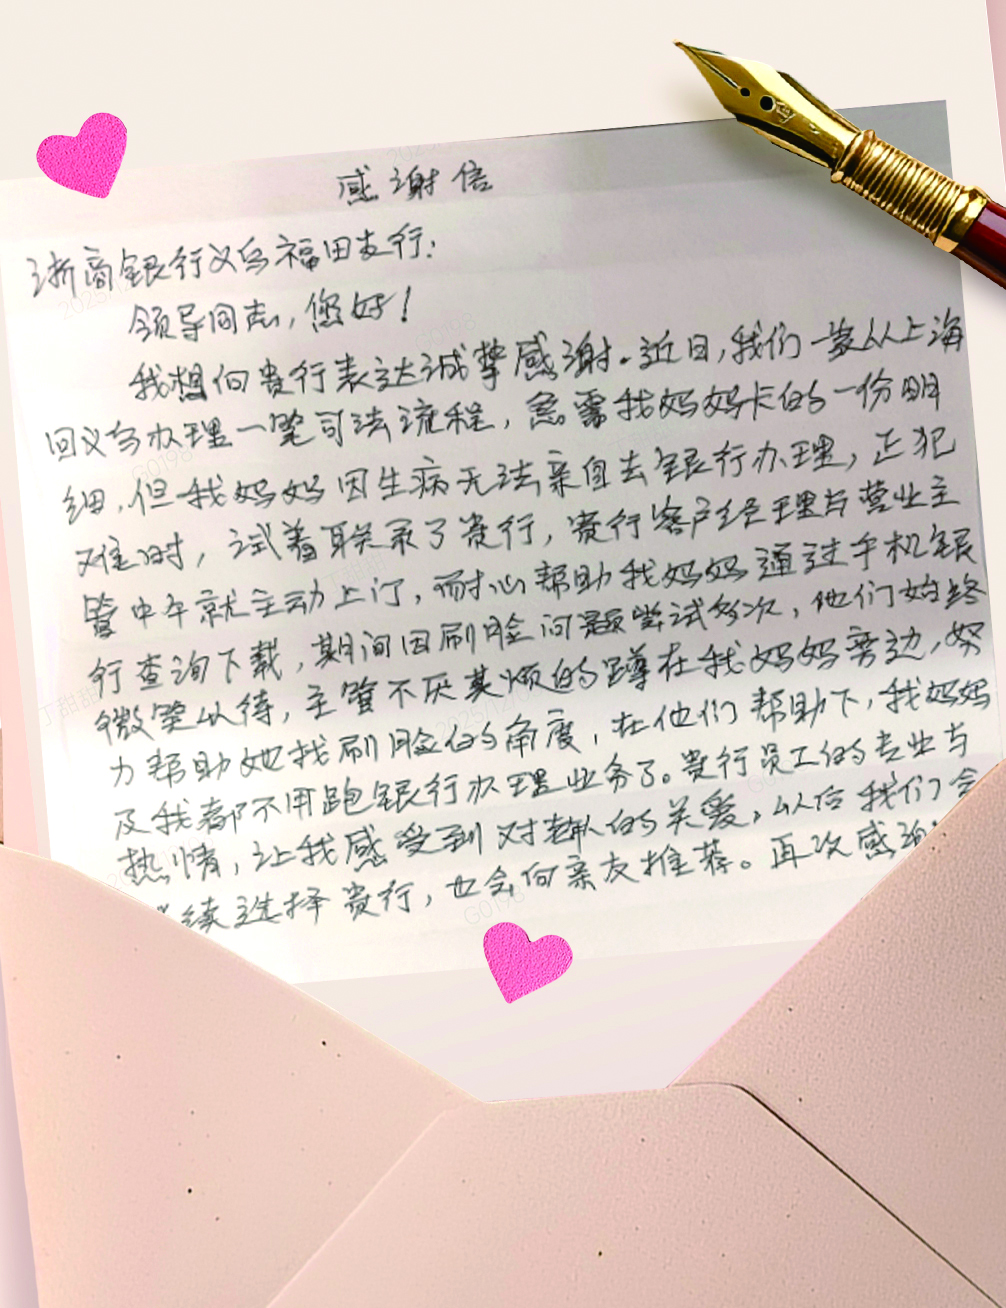 感谢信
浙商银行义乌福田支行：
领导同志，您好！
我想向贵行表达诚挚感谢。近日，我们一家从上海
回义乌办理一笔司法流程，急需我妈妈卡的一份明
细，但我妈妈因生病无法亲自去银行办理，正犯
难时，试着联系了贵行，贵行客户经理与营业主
管中午就主动上门，耐心帮助我妈妈通过手机银
行查询下载，期间因刷脸问题尝试多次，他们始终
微笑以待，主管不厌其烦的蹲在我妈妈旁边，努
力帮助她找刷脸的角度，在他们帮助下，我妈妈
及我都不用跑银行办理业务了。贵行员工的专业与
热情，让我感受到对群众的关爱，以后我们会
续选择贵行，也会向亲友推荐。再次感谢